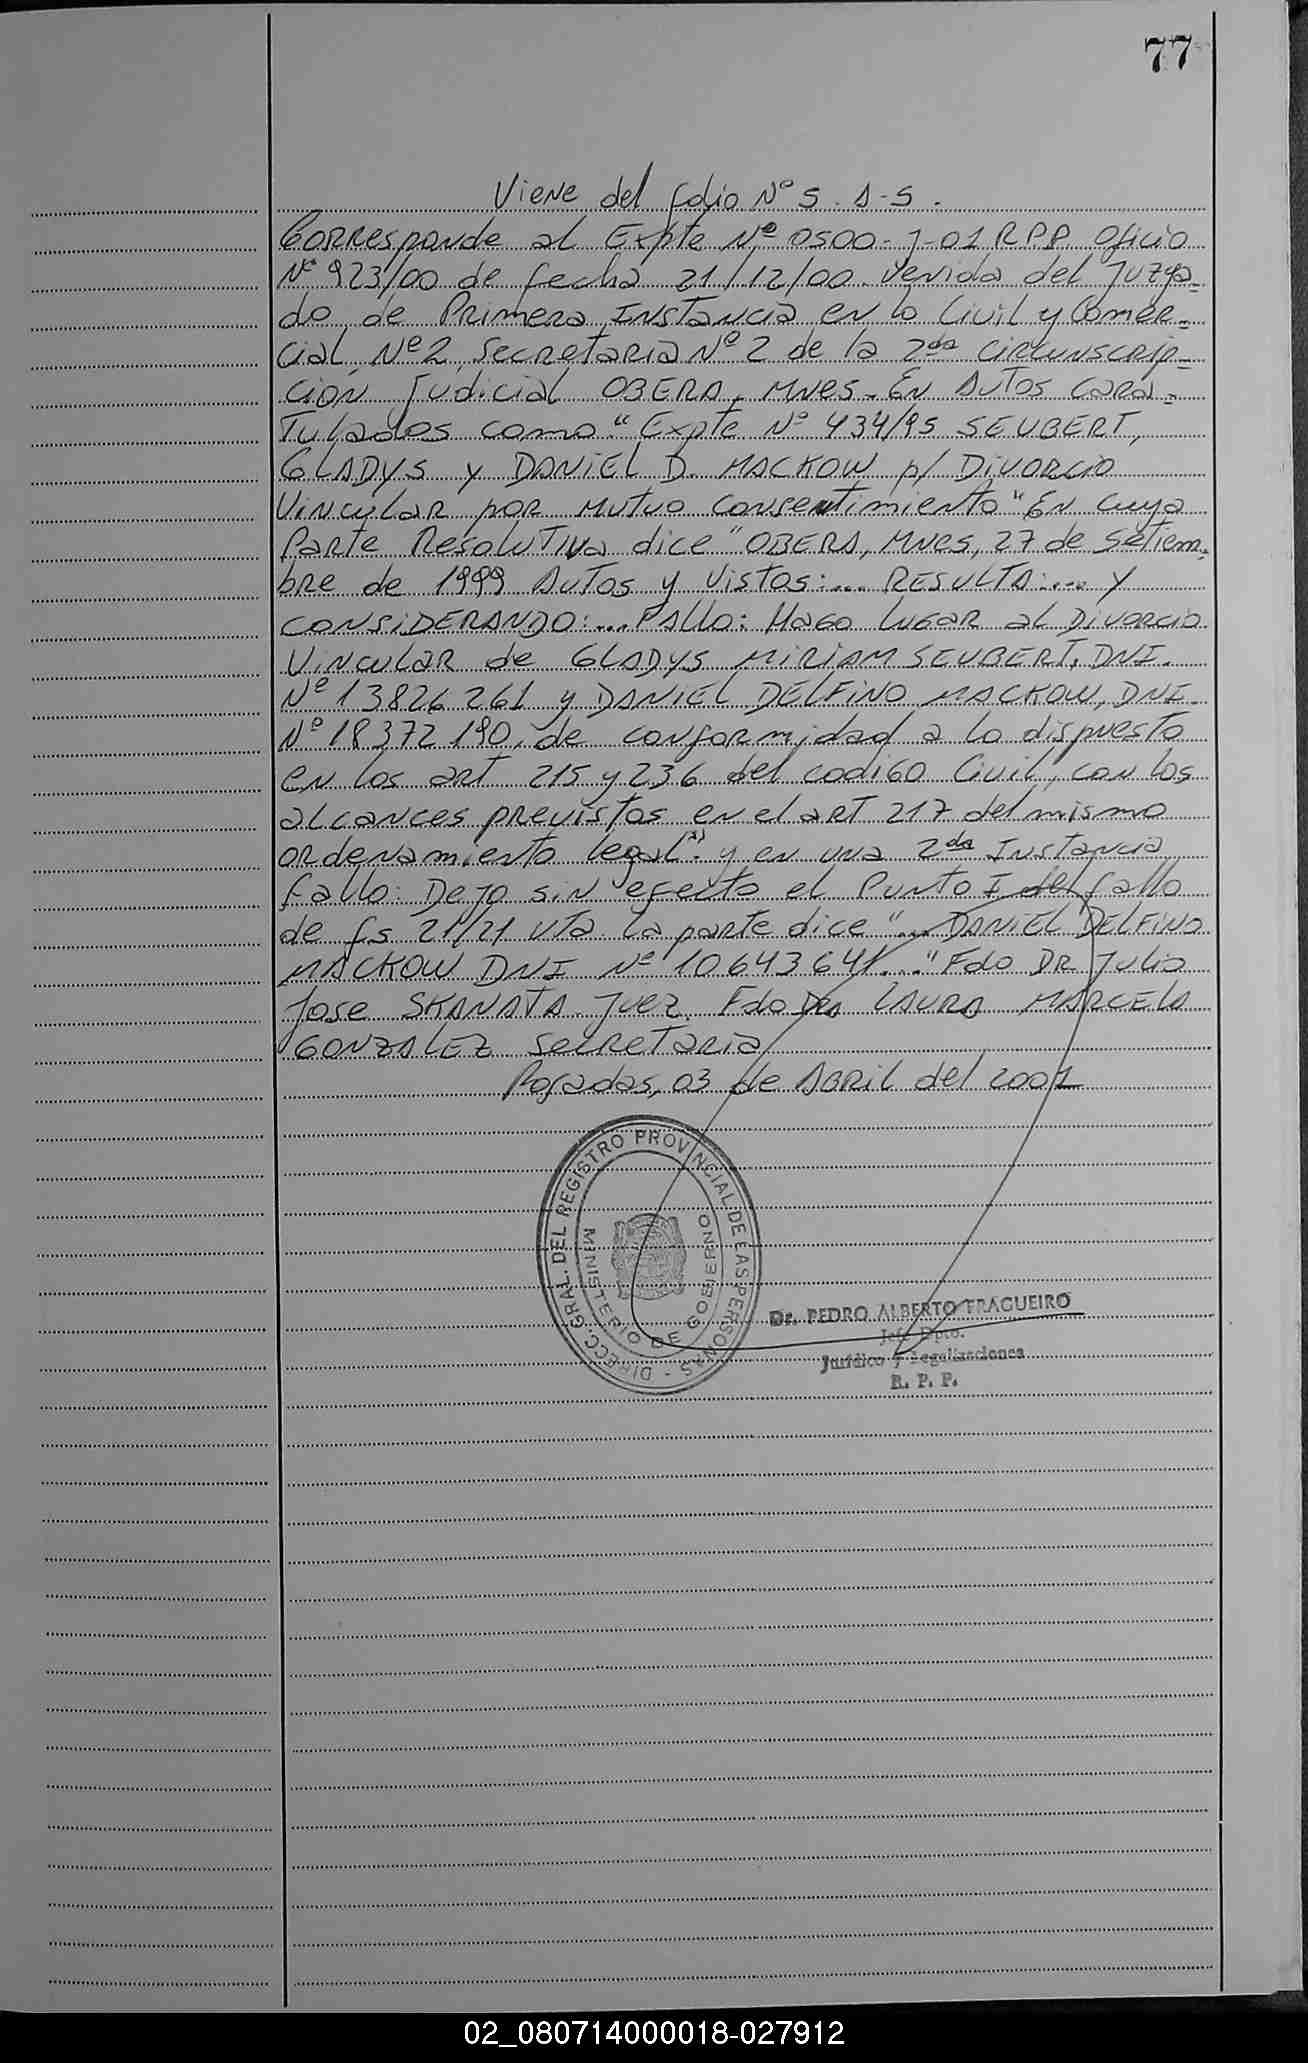 77
Viene del folio Nº 5. A-S.
Corresponde al Expte Nº 0500-J-01 RPP. Oficio
Nº 923/00 de fecha 21/12/00. Venida del Juzga-
do de Primera Instancia en lo Civil y Comer-
cial Nº 2 Secretaria Nº 2 de la 2da Circunscrip-
ción Judicial OBERA, Mnes. En Autos cara-
Tulados como "Expte Nº 434/95 SEUBERT,
GLADYS y DANIEL D. MACKOW p/ Divorcio
Vincular por Mutuo Consentimiento" En cuya
Parte Resolutiva dice "OBERA, Mnes, 27 de Setiem-
bre de 1999 Autos y Vistos:... RESULTA:... Y
CONSIDERANDO:... FAllo: Hago lugar al Divorcio
Vincular de GLADYS MIRIAM SEUBERT, DNI.
Nº 13826261 y DANIEL DELFINO MACKOW, DNI.
Nº 18372190, de conformidad a lo dispuesto
en los art 215 y 236 del codigo Civil, con los
alcances previstos en el art 217 del mismo
ordenamiento legal". y en una 2da Instancia
fallo: Dejo sin efecto el Punto I del fallo
de fs 21/21 vta. la parte dice "... DANIEL DELFINO
MACKOW DNI Nº 10643641..." Fdo DR Julio
Jose SKANATA Juez. Fdo Dra LAURA MARCELA
GONZALEZ Secretaria
Posadas, 03 de Abril del 2001
DIRECC. GRAL. DEL REGISTRO PROVINCIAL DE LAS PERSONAS -
MINISTERIO DE GOBIERNO
Dr. PEDRO ALBERTO FRAGUEIRO
Jefe Dpto.
Jurídico y Legalizaciones
R. P. P.
02_080714000018-027912